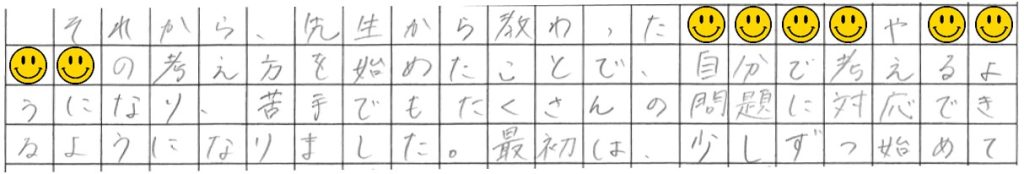 それから、先生から教わったや
の考え方を始めたことで、自分で考えるよ
うになり、苦手でもたくさんの問題に対応でき
るようになりました。最初は、少しずつ始めて